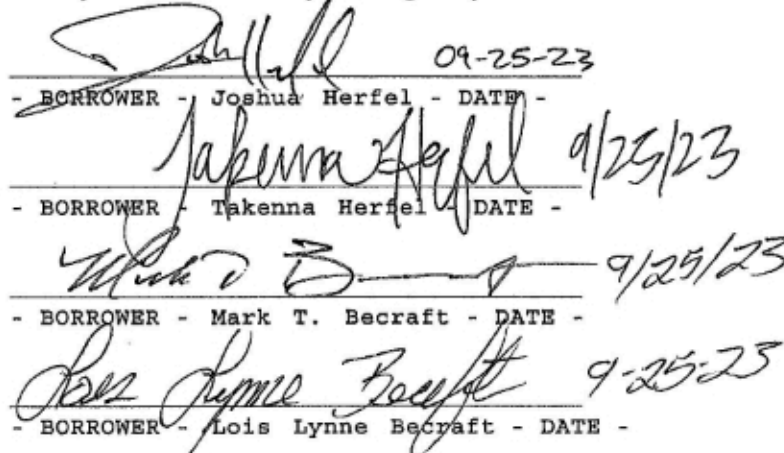 Josh Herfel 09-25-23
- BORROWER - Joshua Herfel - DATE -
Takenna Herfel 9/25/23
- BORROWER - Takenna Herfel - DATE -
Mark T B 9/25/23
- BORROWER - Mark T. Becraft - DATE -
Lois Lynne Becraft 9-25-23
- BORROWER - Lois Lynne Becraft - DATE -